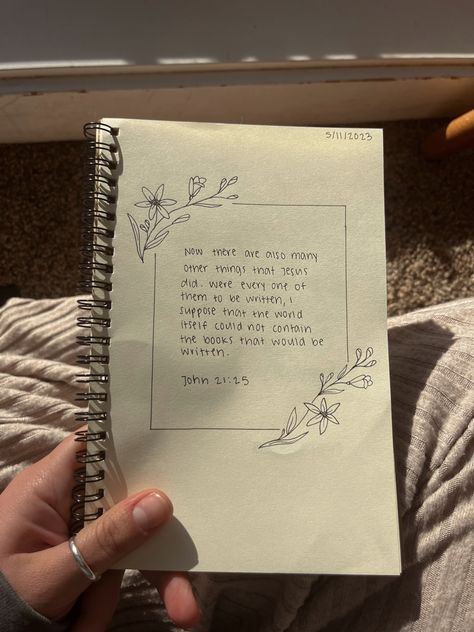 5/11/2023
Now there are also many
other things that Jesus
did. Were every one of
them to be written, I
suppose that the world
itself could not contain
the books that would be
written.
John 21:25